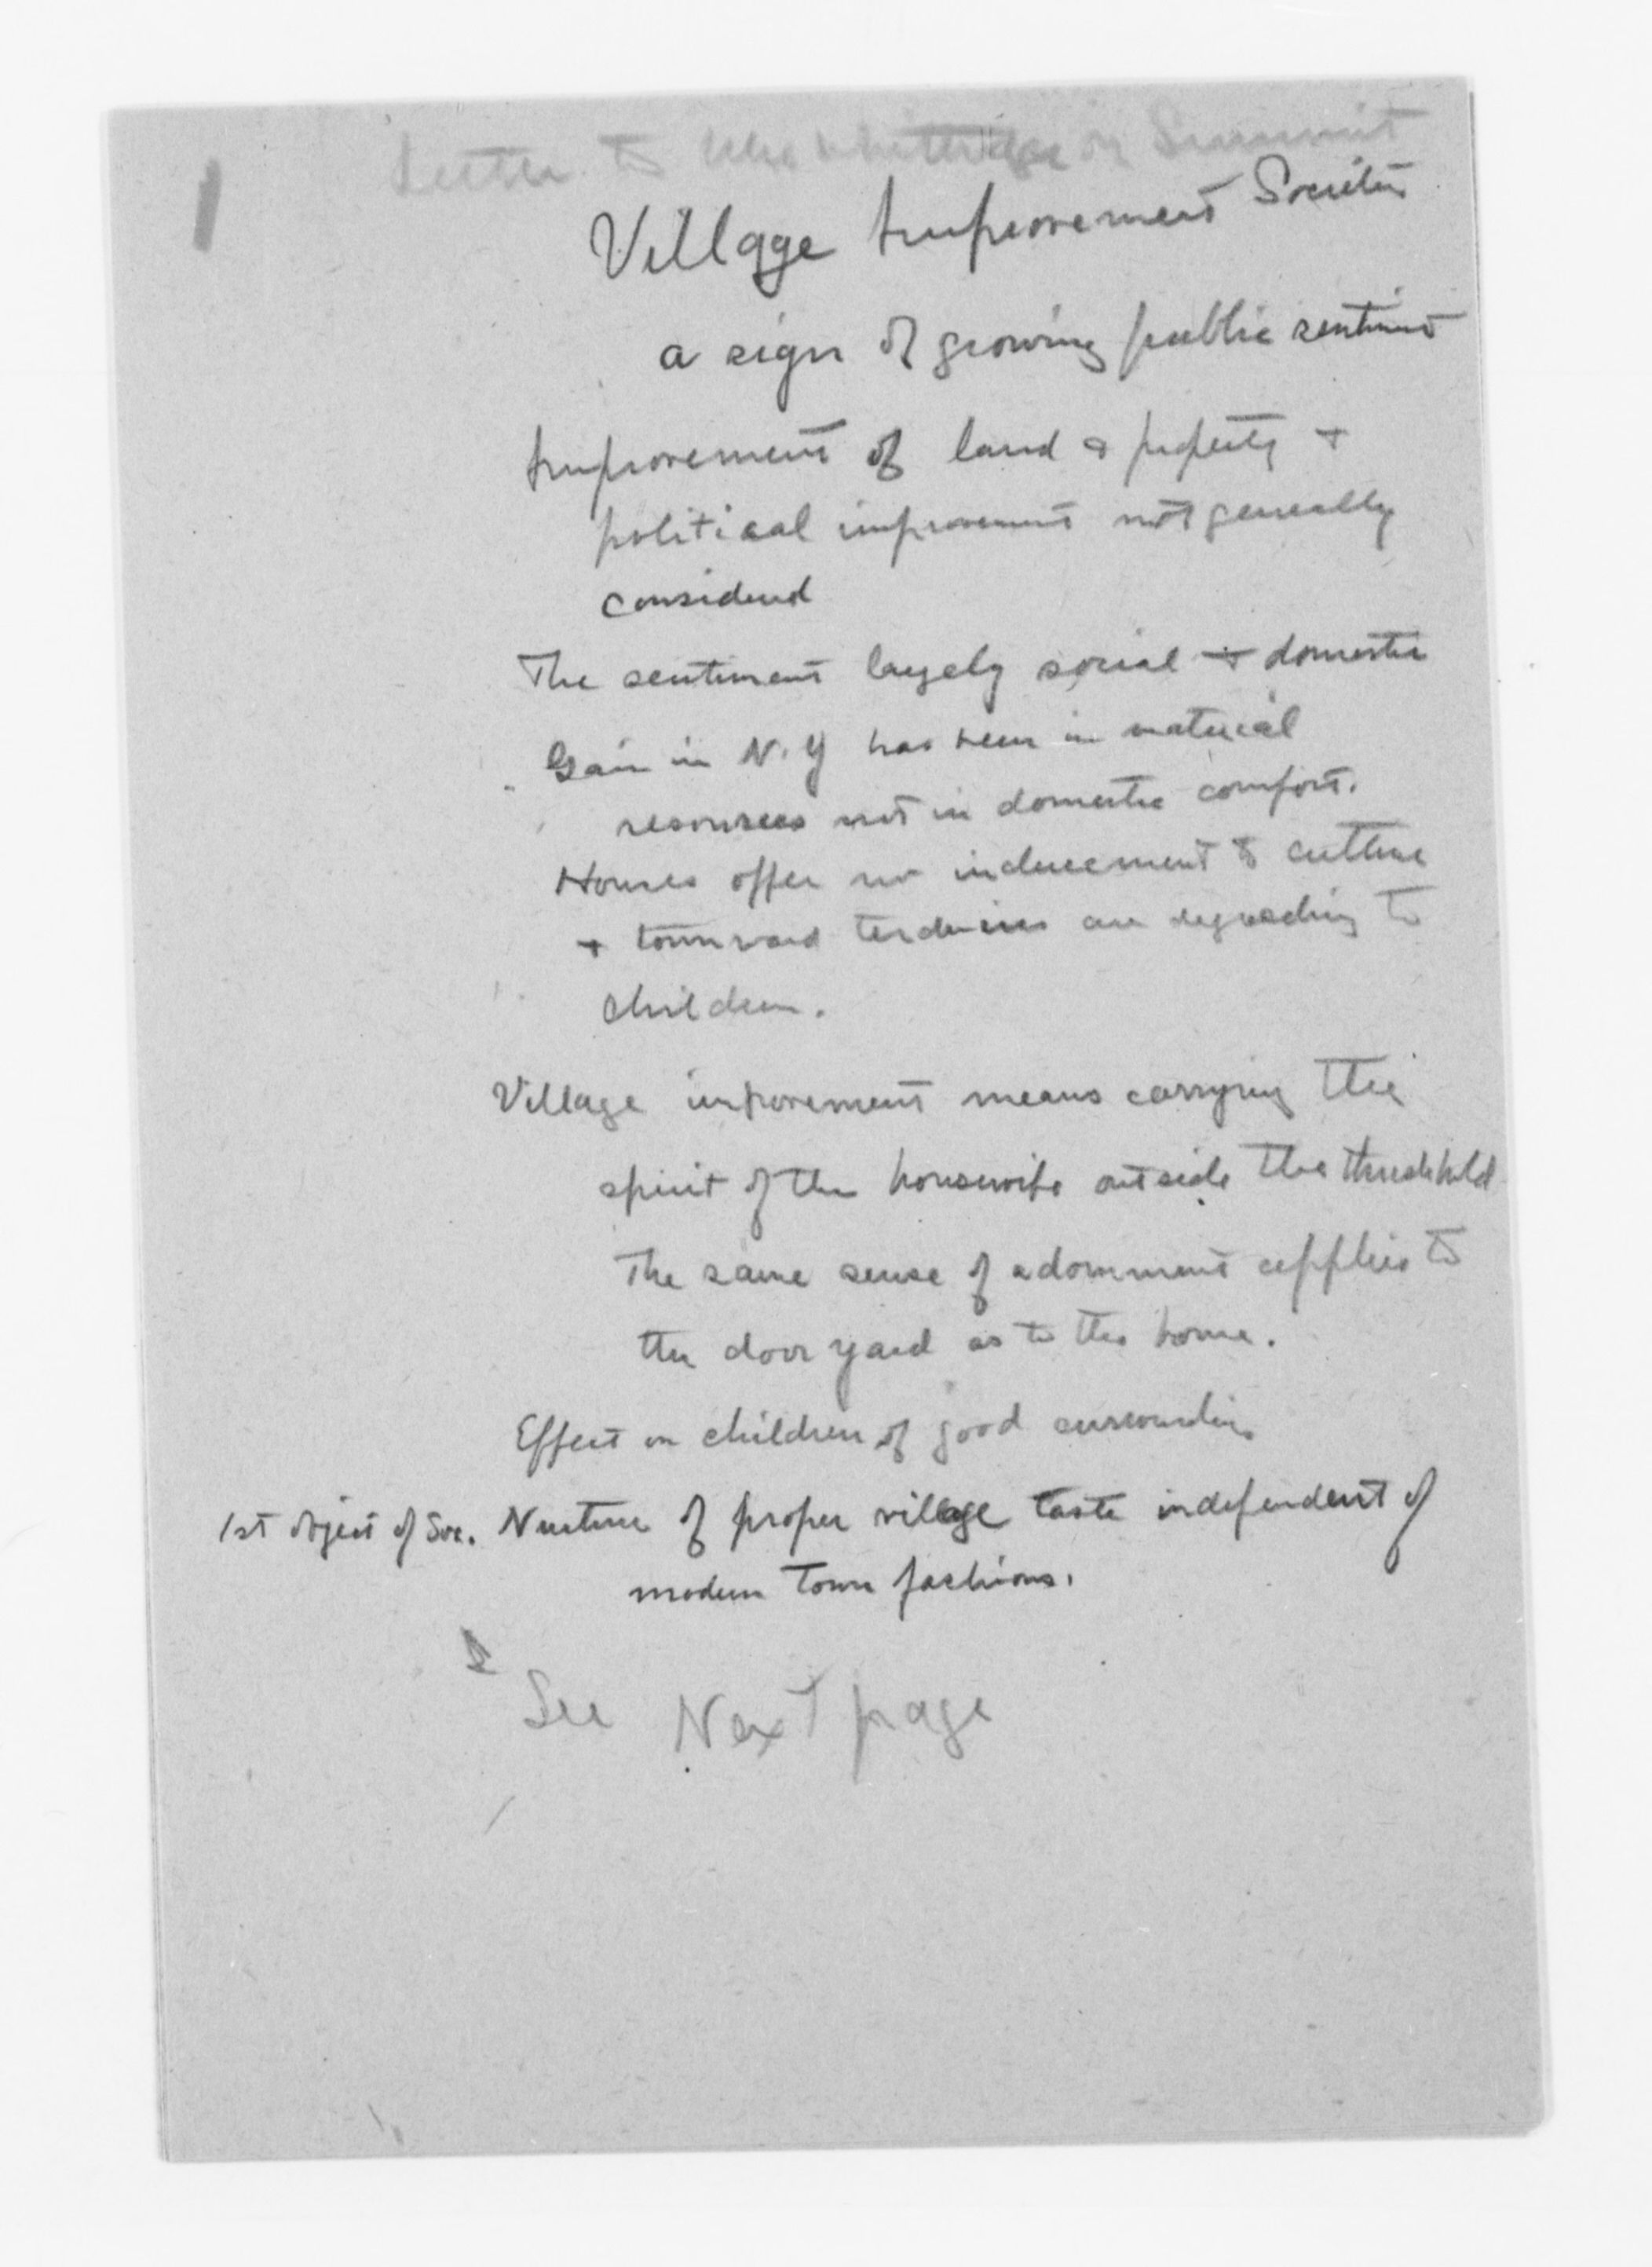 1
Letter to Whittredge on Summit
Village Improvement Societies
a sign of growing public sentiment
Improvement of land & property &
political improvement not generally
considered
The sentiment largely social & domestic
Gain in N.Y has been in material
resources not in domestic comfort.
Houses offer no inducement to culture
& townward tendencies are degrading to
children.
Village improvement means carrying the
spirit of the housewife outside the threshhold
The same sense of adornment applies to
the door yard as to the home.
Effect on children of good surroundings
1st object of Soc. Nurture of proper village taste independent of
modern town fashions.
See Next page